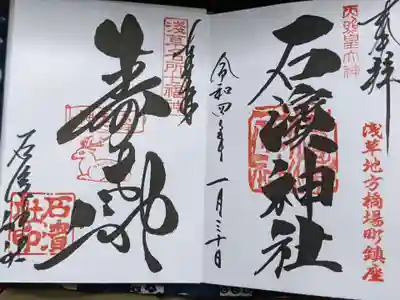 奉拝
天照皇大神
浅草地方橋場町鎮座
石濱神社
令和四年 一月三十日
浅草名所七福神
奉拝
寿老神
石濱神社